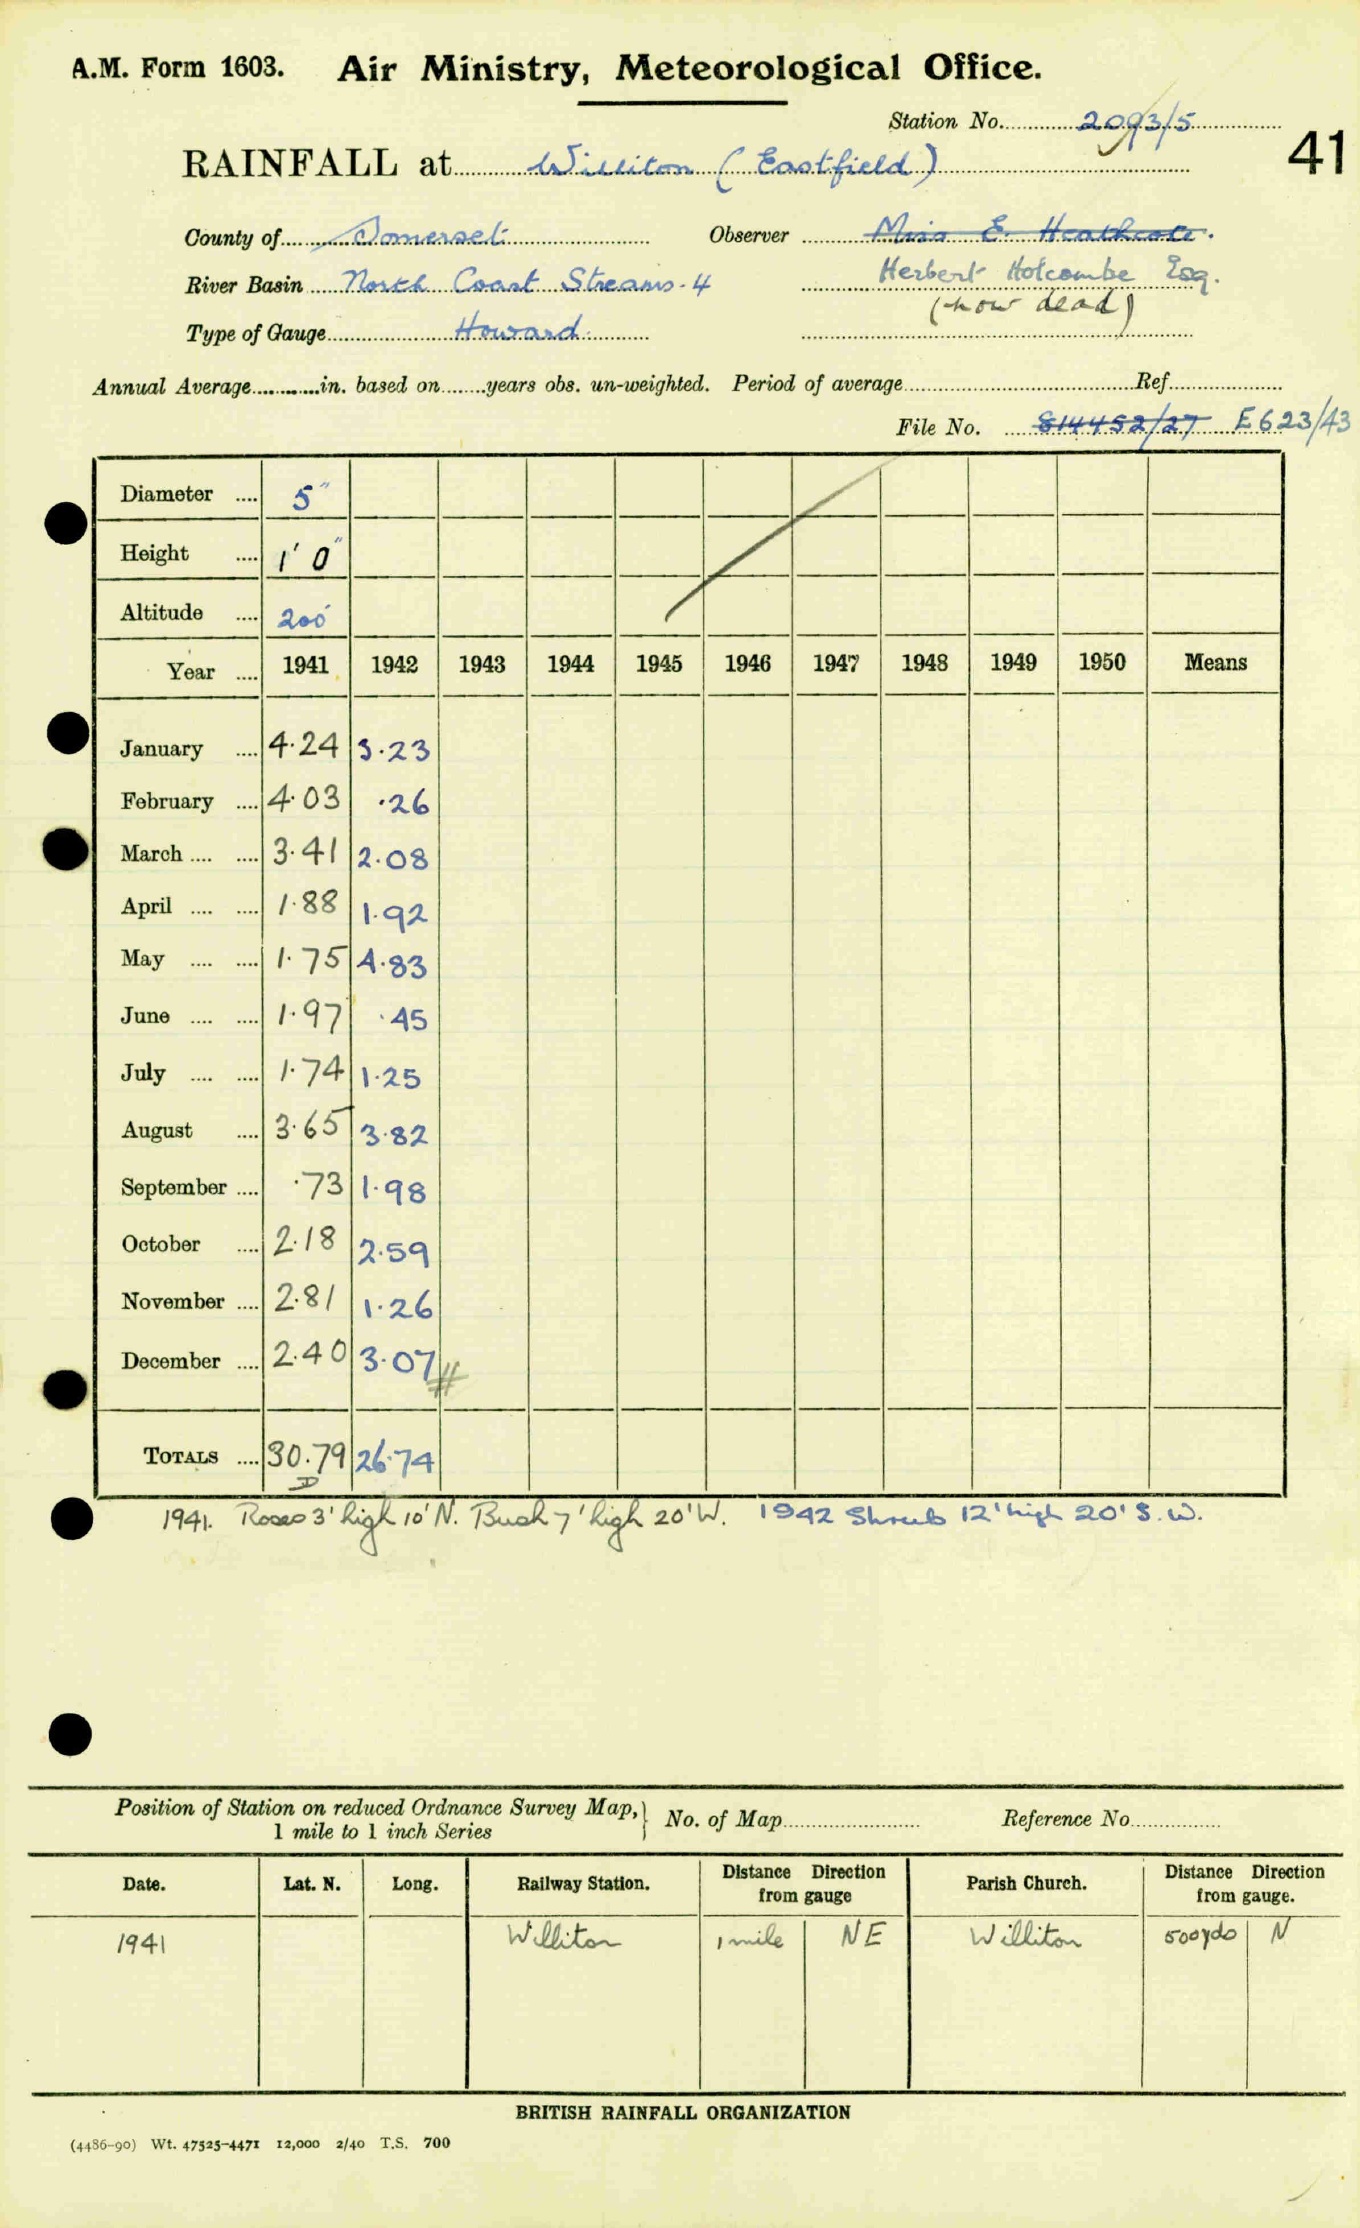 A.M. Form 1603. Air Ministry, Meteorological Office.
Station No. 2093/5
41
RAINFALL at Williton (Eastfield)
County of Somerset Observer Miss E. Heathcote.
River Basin North Coast Streams-4 Herbert Holcombe Esq.
(now dead)
Type of Gauge Howard
Annual Average in. based on years obs. un-weighted. Period of average Ref
File No. 814452/27 E623/43
Diameter .... 5"
Height .... 1' 0"
Altitude .... 200'
Year .... 1941 1942 1943 1944 1945 1946 1947 1948 1949 1950 Means
January .... 4.24 3.23
February .... 4.03 .26
March .... .... 3.41 2.08
April .... .... 1.88 1.92
May .... .... 1.75 4.83
June .... .... 1.97 .45
July .... .... 1.74 1.25
August .... 3.65 3.82
September .... .73 1.98
October .... 2.18 2.59
November .... 2.81 1.26
December .... 2.40 3.07 #
TOTALS .... 30.79 26.74
1941. Roses 3' high 10' N. Bush 7' high 20' W. 1942 Shrub 12' high 20' S.W.
Position of Station on reduced Ordnance Survey Map, 1 mile to 1 inch Series } No. of Map Reference No.
Date. Lat. N. Long. Railway Station. Distance Direction from gauge Parish Church. Distance Direction from gauge.
1941 Williton 1 mile NE Williton 500yds N
BRITISH RAINFALL ORGANIZATION
(4486-90) Wt. 47525-4471 12,000 2/40 T.S. 700